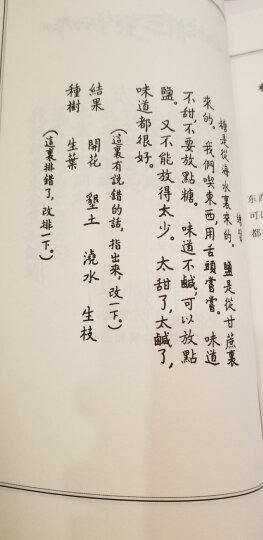 糖是從海水裏來的，鹽是從甘蔗裏
來的。我們喫東西，用舌頭嘗嘗。味道
不甜，不要放點糖。味道不鹹，可以放點
鹽。又不能放得太少。太甜了，太鹹了，
味道都很好。
（這裏有說錯的話，指出來，改一下。）
結果 開花 墾土 澆水 生枝
種樹 生葉
（這裏排錯了，改排一下。）
东西
可以
都